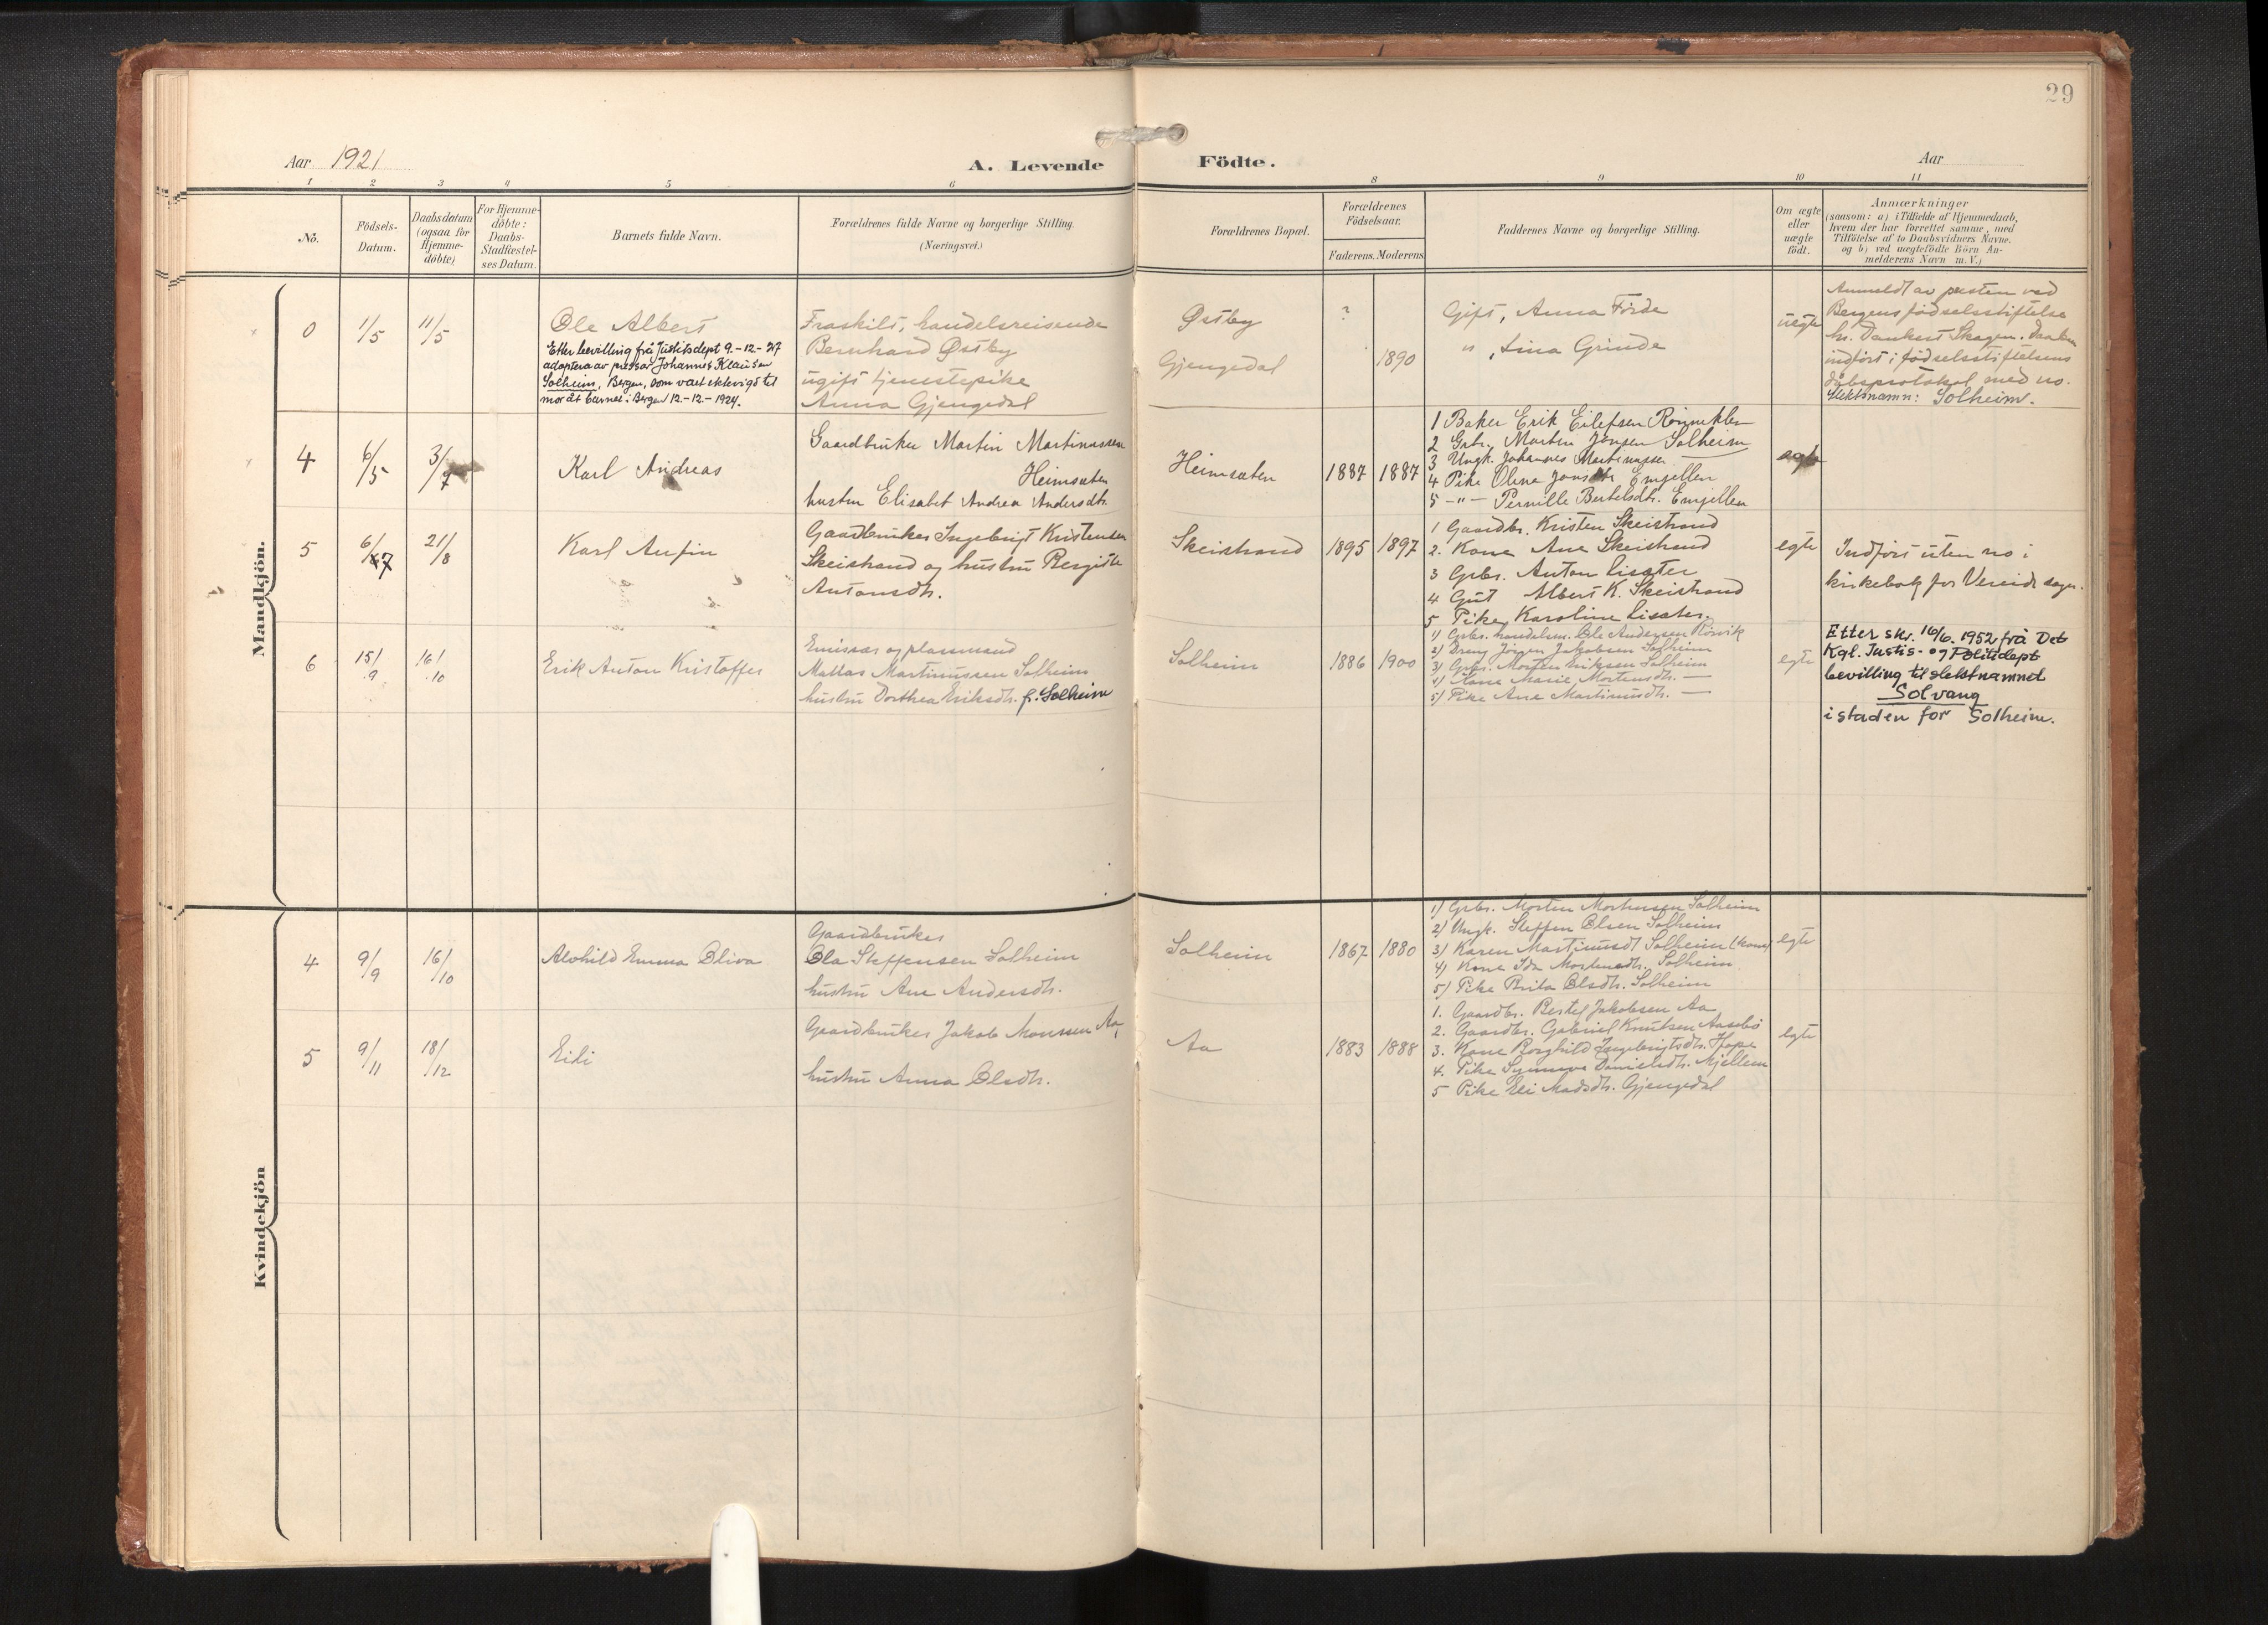 29
Aar 1921
A. Levende Födte.
Aar
1 2 3 4 5 6 8 9 10 11
No.
Födsels-Datum.
Daabsdatum (ogsaa for Hjemme-döbte)
For Hjemme-döbte: Daabs-Stadfæstel-ses Datum.
Barnets fulde Navn.
Forældrenes fulde Navne og borgerlige Stilling.
(Næringsvei.)
Forældrenes Bopæl.
Forældrenes Födselsaar.
Faderens. Moderens.
Faddernes Navne og borgerlige Stilling.
Om ægte eller uægte födt.
Anmærkninger
(saasom: a) i Tilfælde af Hjemmedaab,
hvem der har forrettet samme, med
Tilföielse af to Daabsvidners Navne.
og b) ved uægtefödte Börn An-
melderens Navn m. V.)
Mandkjön.
0 1/5 11/5
Ole Albert
Etter bevilling frå Justitsdept 9.-12.-27
adoptera av pressar Johannes Klausen
Solheim, Bergen, som vart ektevigd til
mor åt barnet i Bergen 12.-12.-1924.
Fraskilt, handelsreisende
Bernhard Østby
ugift tjenestepike
Anna Gjengedal
Østby
Gjengedal
?
1890
Gift, Anna Förde
" , Lina Grinde
uegte
Anmeldt av presten ved
Bergens födselsstiftelse
hr. Dankert Skagen. Daaben
indfört i födselsstiftelsens
dåbsprotokol med no.
Slektsnamn: Solheim.
4 6/5 3/7
Karl Andreas
Gaardbruker Martin Martinussen
Heimsæten
hustru Elisabet Andrea Andersdtr.
Heimsæten
1887 1887
1 Baker Erik Eilefsen
2 Gbr. Morten Jonsen Solheim
3 Ungk. Johannes Martinussen —
4 Pike Oline
5 -"- Pernille Bertelsdtr. Emjellen
egte
5 6/7 21/8
Karl Anfin
Gaardbruker Ingebrigt Kristensen
Skeistrand og hustru Bergitte
Antonsdtr.
Skeistrand
1895 1897
1 Gaardbr. Kristen Skeistrand
2. Kone Ane Skeistrand
3 Gbr. Anton Lisæter
4 Gut Albert K. Skeistrand
5 Pike Karoline Lisæter.
egte
Indfört uten no i
kirkebok for Vereide sogn.
6 15/9 16/10
Erik Anton Kristoffer
Emissær og plassmand
Mattas Martinussen Solheim
hustru Dorthea Eriksdtr. f. Solheim
Solheim
1886 1900
1) Gbr. handelsm. Ole Andersen Rösvik
2) Dreng Jörgen Jakobsen Solheim
3) Gbr. Morten Eriksen Solheim
4) Kone Marie Mortensdtr. —
5) Pike Ane Martinusdtr. —
egte
Etter skr. 16/6. 1952 frå Det
Kgl. Justis- og Politidept
bevilling til slektnamnet
Solvang
i staden for Solheim.
Kvindekjön
4 9/9 16/10
Alvhild Emma Oliva
Gaardbruker
Ola Steffensen Solheim
hustru Ane Andersdtr.
Solheim
1867 1880
1) Gbr. Morten Mortensen Solheim
2) Ungk. Steffen Olsen Solheim
3) Karen Martinusdt Solheim (kone)
4) Kone Ida Mortensdtr. Solheim
5) Pike Brita Olsdtr. Solheim
egte
5 9/11 18/12
Eili
Gaardbruker Jakob Monssen Aa,
hustru Anna Olsdtr.
Aa
1883 1888
1. Gaardbr. Bertel Jakobsen Aa
2. Gaardbr. Gabriel Knutsen Aasebö
3. Kone Borghild Ingebrigtsdtr. Hope
4. Pike Synneva Danielsdtr. Mjellem
5 Pike Eli Madsdtr. Gjengedal
egte